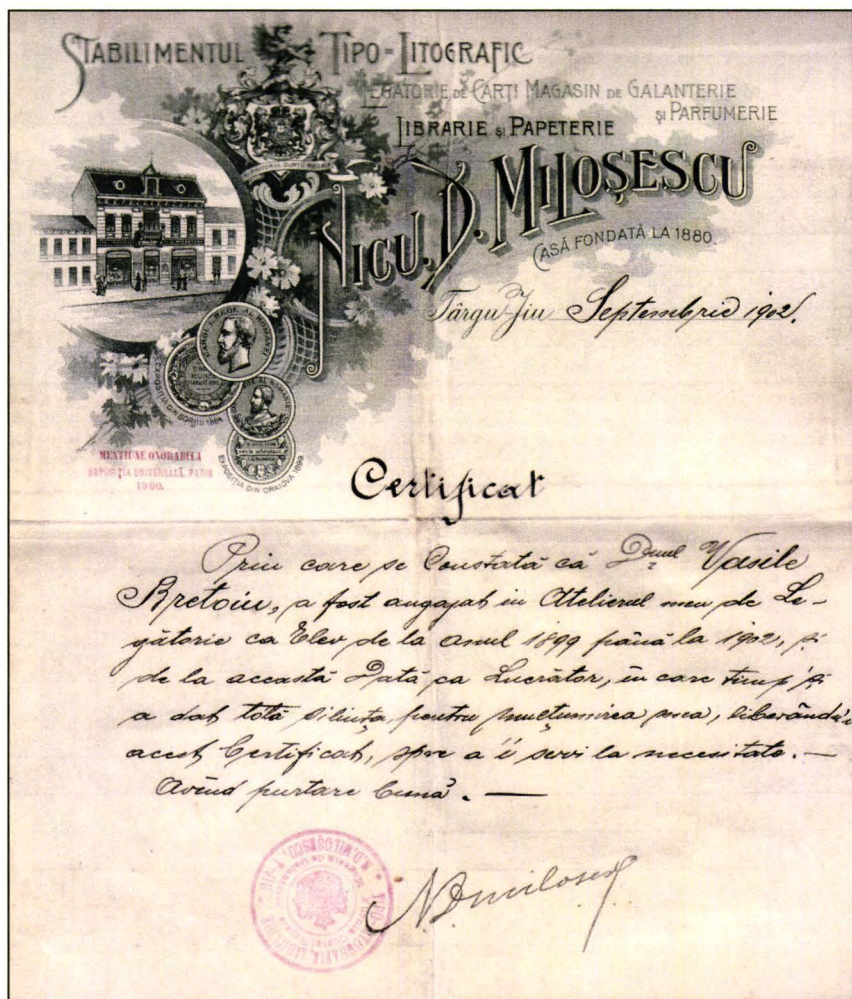 STABILIMENTUL TIPO-LITOGRAFIC
LEGATORIE DE CĂRȚI MAGASIN DE GALANTERIE
ȘI PARFUMERIE
LIBRARIE ȘI PAPETERIE
NICU. D. MILOȘESCU
CASĂ FONDATĂ LA 1880.
Târgu Jiu Septembrie 1902.
CAROL I REGE AL ROMANIEI
EXPOSITIA DIN GORJIU 1884
EXPOSITIA DIN CRAIOVA 1899
MENTIUNE ONORABILA
EXPOSITIA UNIVERSALĂ PARIS
1900.
Certificat
Prin care se Constată că Dnul Vasile
Bretoiu, a fost angajat in Atelierul meu de Le-
gătorie ca Elev de la anul 1899 până la 1902, și
de la această Dată ca Lucrător, in care timp 'și
a dat totă silința pentru mulțumirea mea, liberându-i
acest Certificat, spre a 'i servi la necesitate. —
Avênd purtare bună. —
N D Milosescu
N.D. MILOȘESCU, T-JIU